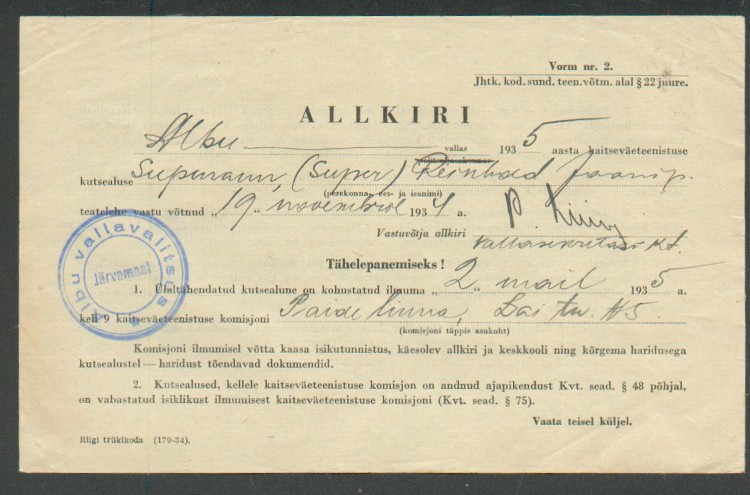 Vorm nr. 2.
Jhtk. kod. sund. teen. võtm. alal § 22 juure.
ALLKIRI
Albu vallas 1935 aasta kaitseväeteenistuse
kutsealuse (Super) Reinhold Jaani p.
(perekonna-, ees- ja isanimi)
teatelehe vastu võtnud „19“ novembril 1934 a.
Vastuvõtja allkiri
Vallasekretäri k.t.
Albu vallavalitsus
Järvamaal
Tähelepanemiseks!
1. Ülaltähendatud kutsealune on kohustatud ilmuma „2“ mail 1935 a.
kell 9 kaitseväeteenistuse komisjoni Paide linna, Lai tn. N5.
(komisjoni täppis asukoht)
Komisjoni ilmumisel võtta kaasa isikutunnistus, käesolev allkiri ja keskkooli ning kõrgema haridusega
kutsealustel — haridust tõendavad dokumendid.
2. Kutsealused, kellele kaitseväeteenistuse komisjon on andnud ajapikendust Kvt. sead. § 48 põhjal,
on vabastatud isiklikust ilmumisest kaitseväeteenistuse komisjoni (Kvt. sead. § 75).
Vaata teisel küljel.
Riigi trükikoda (179-34).